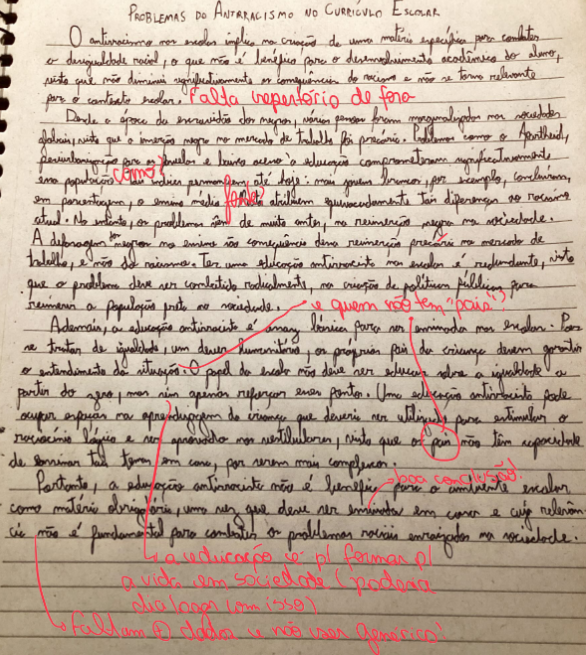 PROBLEMAS DO ANTIRRACISMO NO CURRÍCULO ESCOLAR
O antirracismo nas escolas implica na criação de uma matéria específica para combater
a desigualdade racial, o que não é benéfico para o desenvolvimento acadêmico do aluno,
visto que não diminui significativamente as consequências do racismo e não se torna relevante
para o contexto escolar. Falta repertório de fora
Desde a época da escravidão dos negros, várias pessoas foram marginalizadas nas sociedades
globais, visto que a inserção negra no mercado de trabalho foi precária. Problemas como o Apartheid,
para as favelas e baixo acesso a educação comprometeram significativamente
essa população como? índices permanecem até hoje: mais jovens brancos, por exemplo, concluíram,
em porcentagem, o ensino médio fonte? atribuem equivocadamente tais diferenças ao racismo
atual. No entanto, os problemas vêm de muito antes, na reinserção negra na sociedade.
A defasagem negra no ensino são consequência dessa reinserção precária no mercado de
trabalho, e não do racismo. Ter uma educação antirracista nas escolas é redundante, visto
que o problema deve ser combatido radicalmente, na criação de políticas públicas para
reinserir a população preta na sociedade. e quem não tem "pais"?
Ademais, a educação antirracista é básica para ser ensinada nas escolas. Por
se tratar de igualdade, um dever humanitário, os próprios pais da criança devem garantir
o entendimento da situação. O papel da escola não deve ser educar sobre a igualdade a
partir do zero, mas sim apenas reforçar esses pontos. Uma educação antirracista pode
ocupar espaços na aprendizagem da criança que deveria ser utilizado para estimular o
raciocínio lógico e ser aprovado nos vestibulares, visto que os pais não têm capacidade
de ensinar tais temas em casa, por serem mais complexos.
boa conclusão!
Portanto, a educação antirracista não é benéfica para o ambiente escolar
como matéria obrigatória, uma vez que deve ser ensinada em casa e cuja relevân-
cia não é fundamental para combater os problemas raciais enraizados na sociedade.
a educação é p/ formar p/
a vida em sociedade (poderia
dialogar com isso)
Faltam dados e não usar genérico!